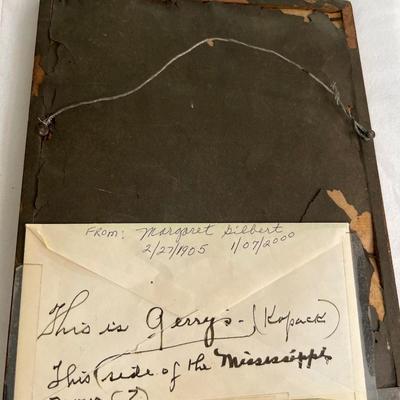 FROM: Margaret Gilbert
2/27/1905 1/07/2000
This is Gerry's - (Kopack)
This side of the Mississippi
(?)